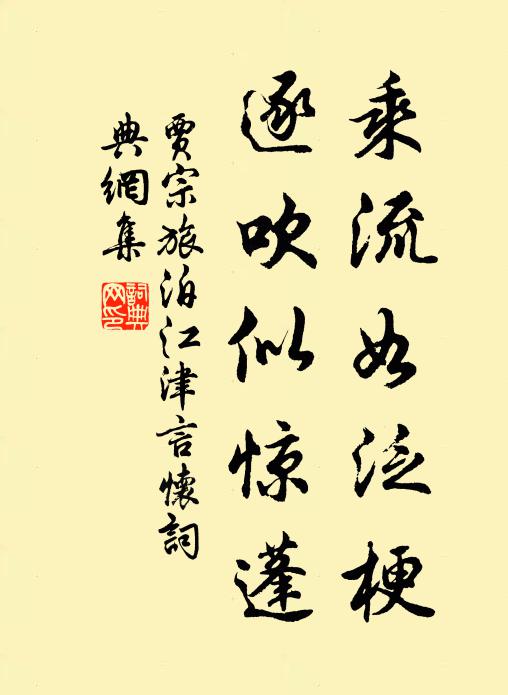 乘流如泛梗
逐吹似惊蓬
賈宗旅泊江津言懷詞
典網集
詞典
网印